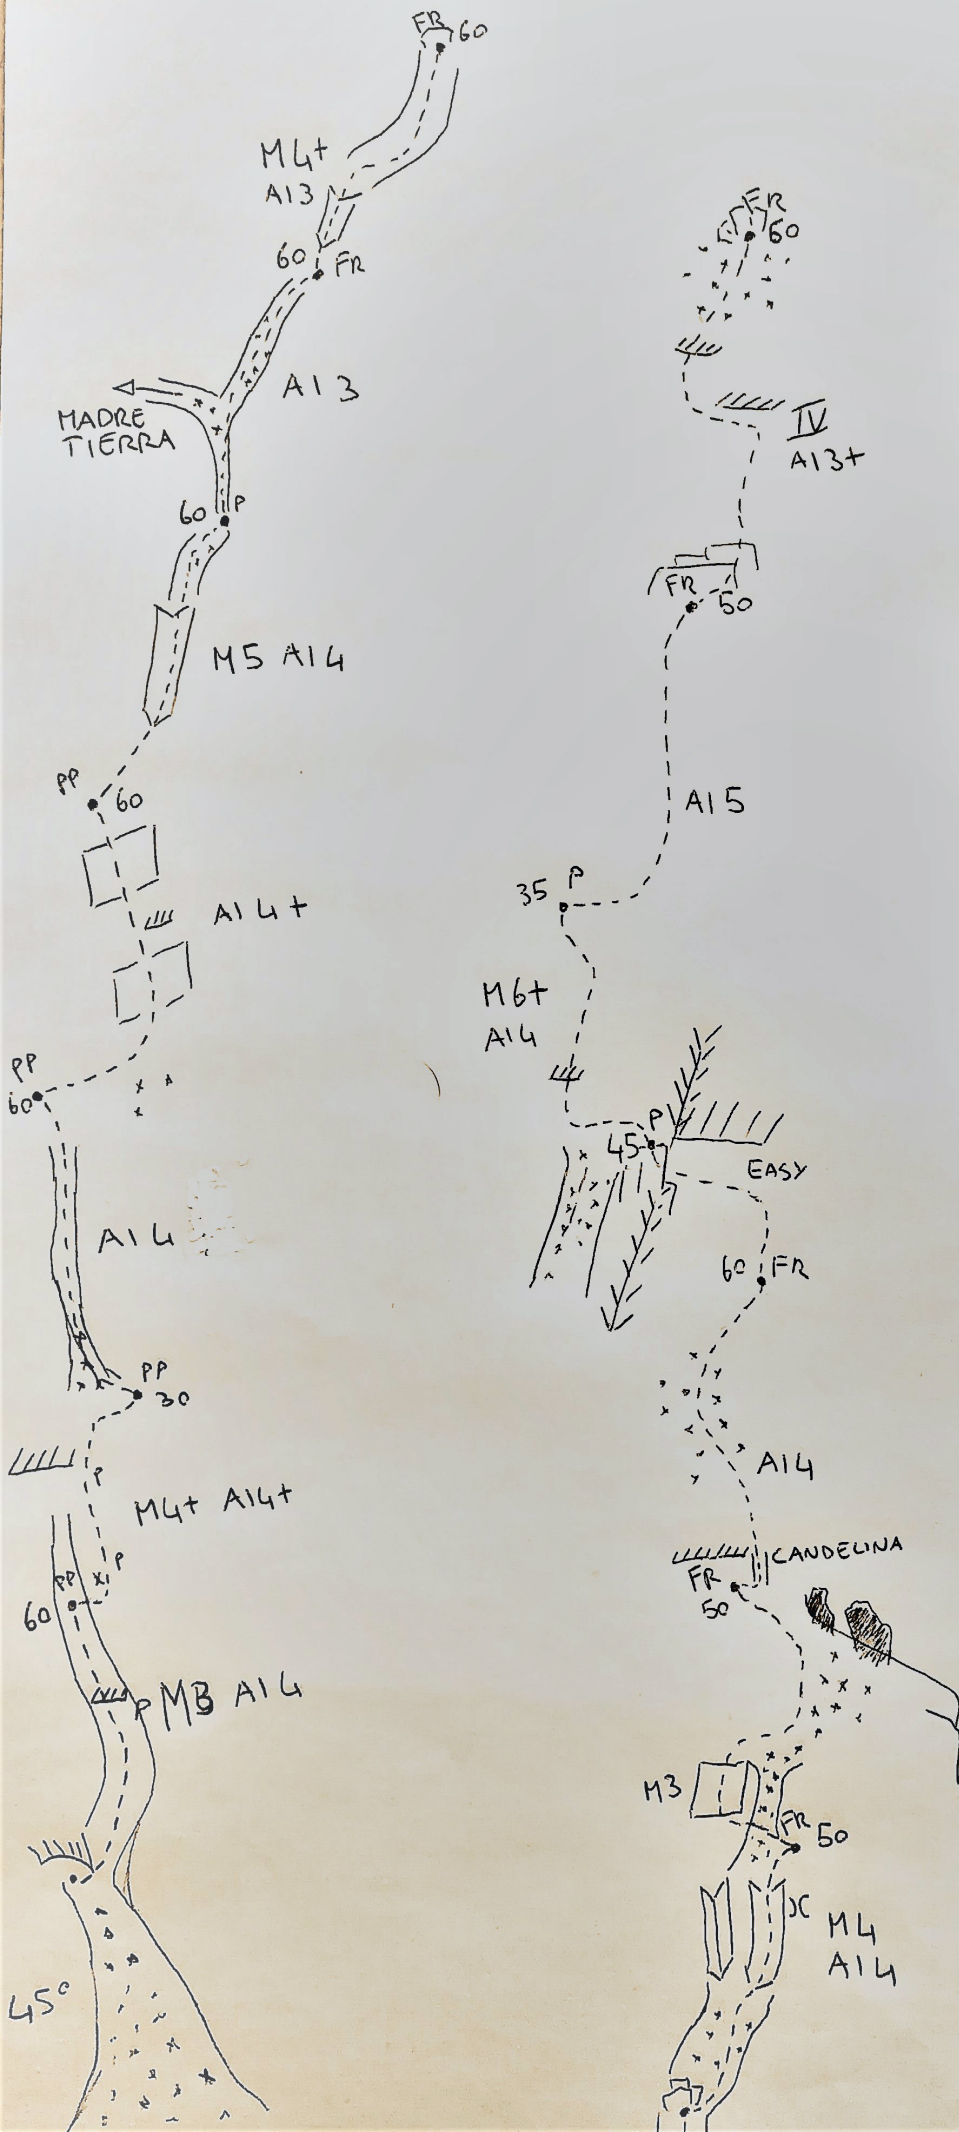 FR
60
M4+
AI3
60
FR
AI3
MADRE
TIERRA
60
P
M5 AI4
PP
60
AI4+
PP
60
AI4
PP
30
P
M4+ AI4+
P
PP
60
P
M3 AI4
45°
FR
60
IV
AI3+
FR
50
AI5
35
P
M6+
AI4
P
45
EASY
60
FR
AI4
CANDELINA
FR
50
M3
FR
50
M4
AI4